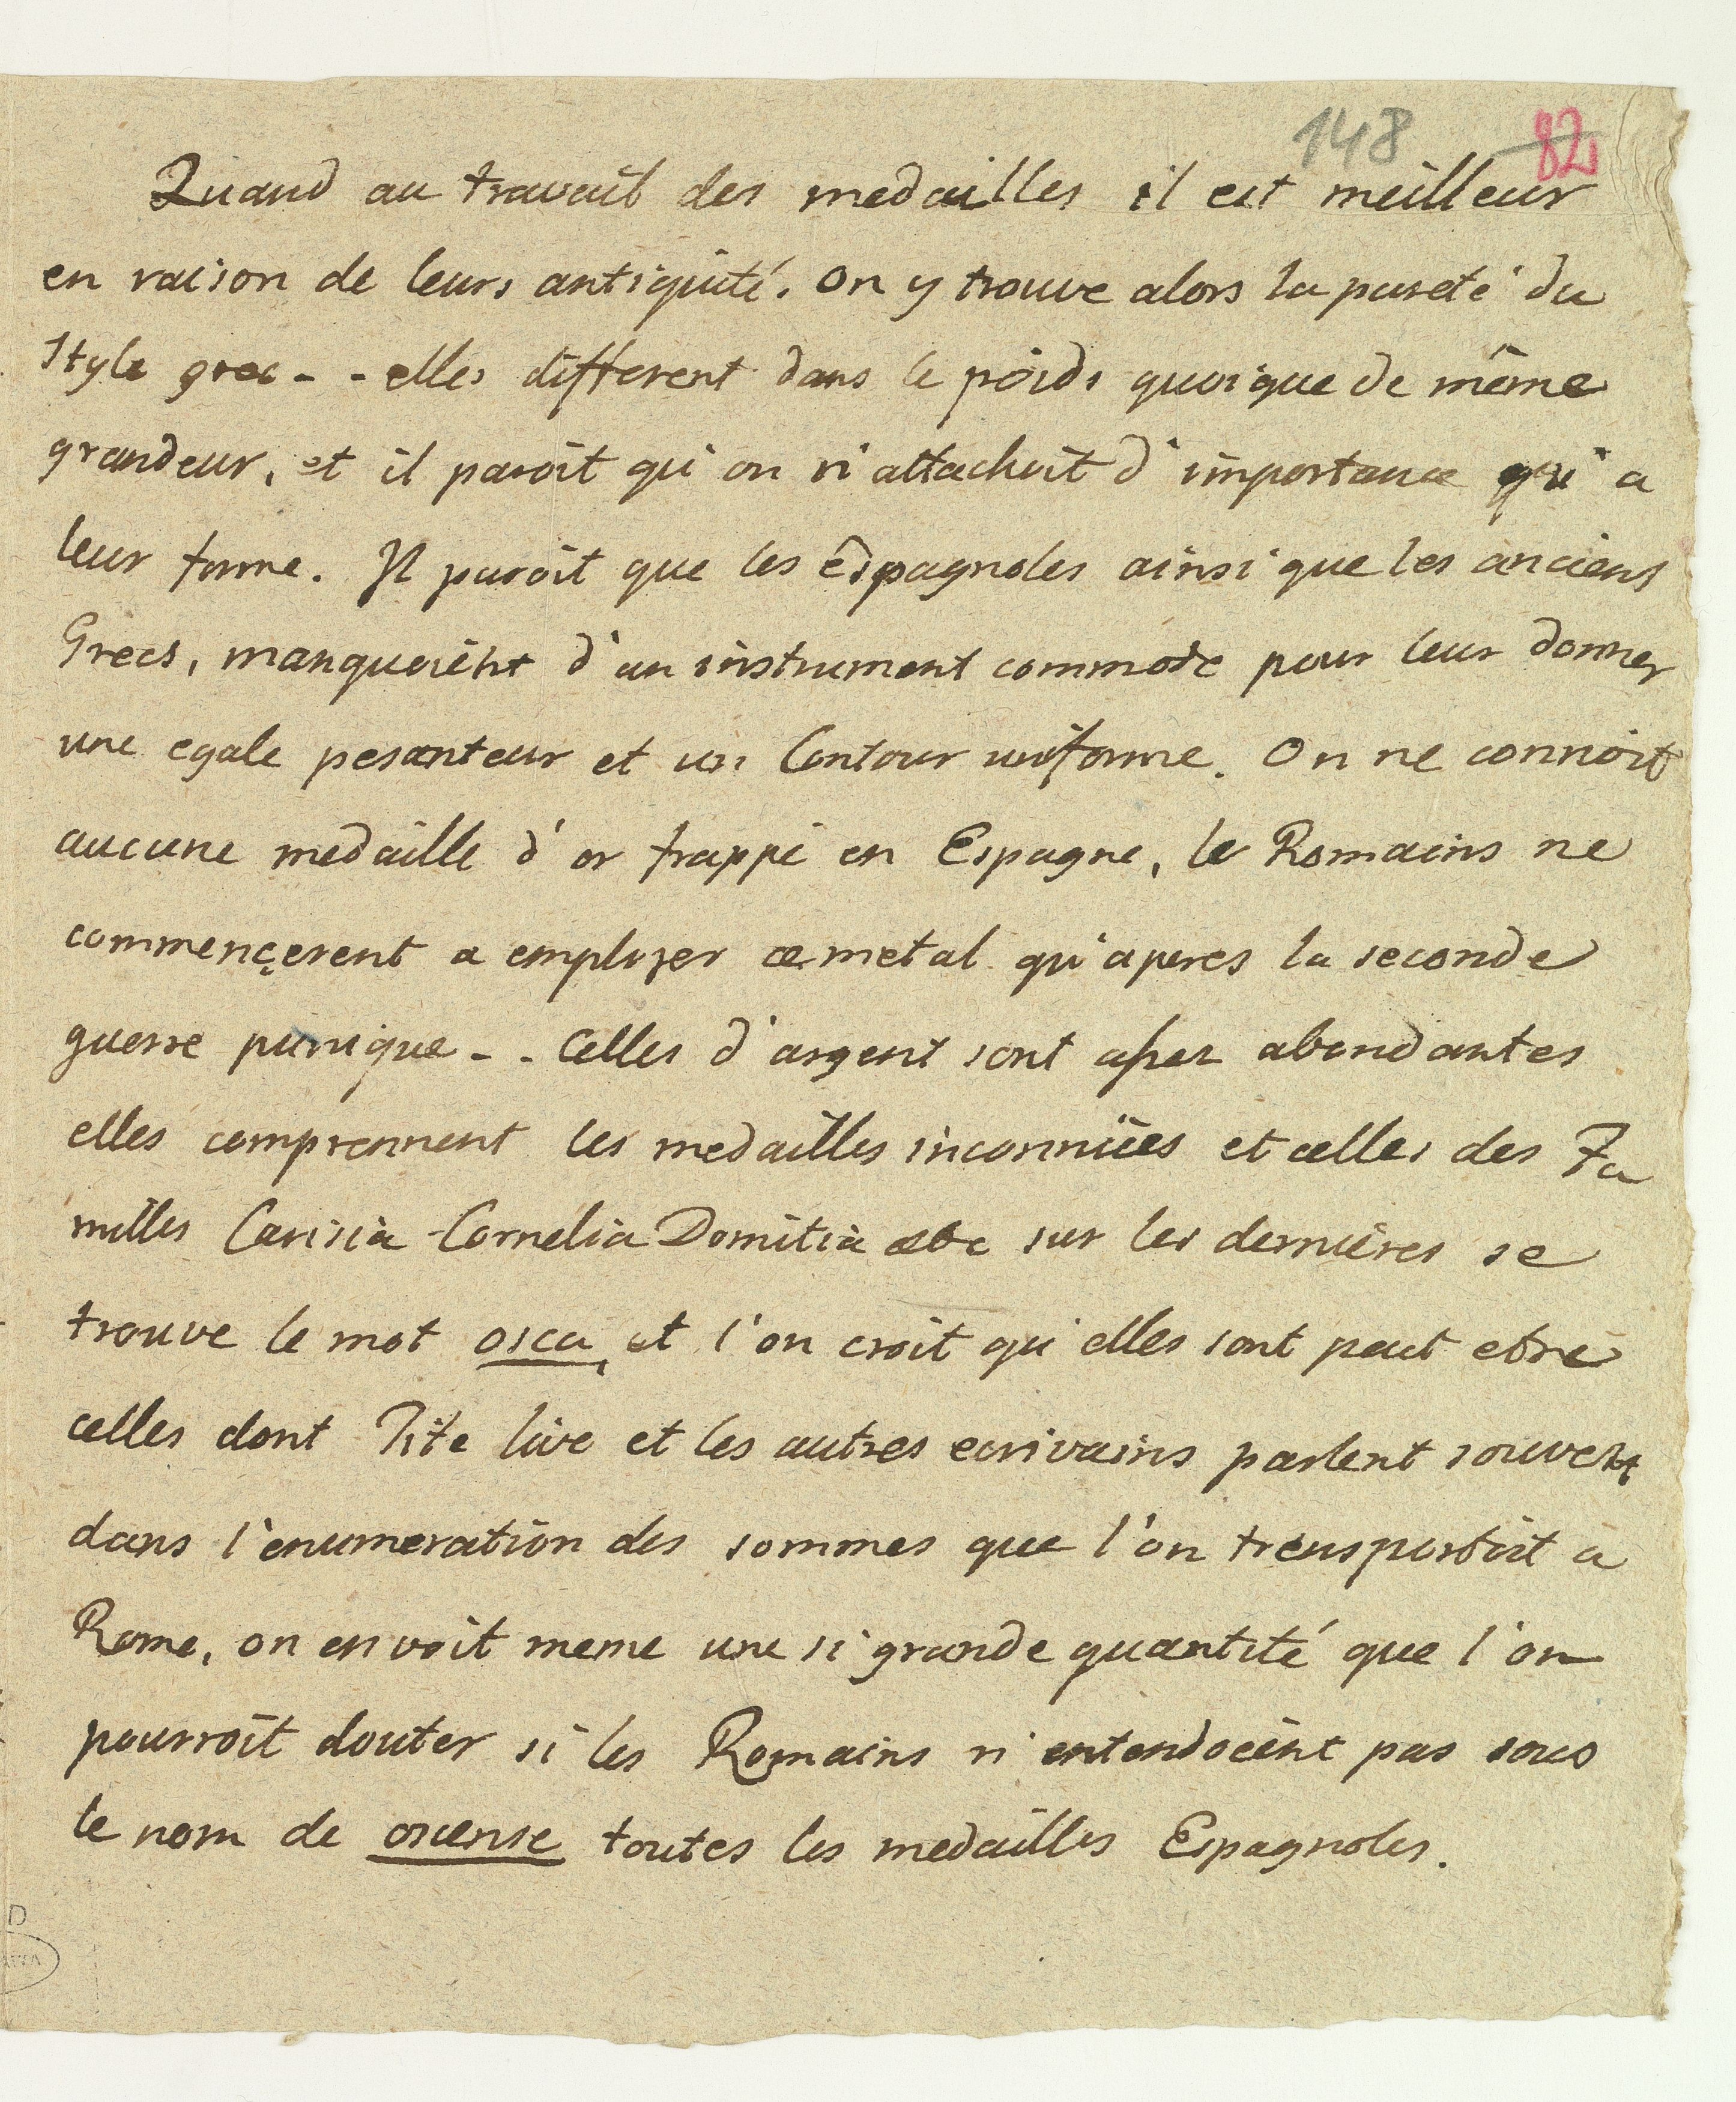 148 82
Quand au travail des medailles il est meilleur
en raison de leurs antiquité. On y trouve alors la pureté du
Style grec - - elles different dans le poids quoique de même
grandeur, et il paroit qu'on n'attachoit d'importance qu'a
leur forme. Il paroit que les Espagnoles ainsi que les anciens
Grecs, manquoient d'un instrument commode pour leur donner
une egale pesanteur et un Contour uniforme. On ne connoit
aucune medaille d'or frappé en Espagne, le Romains ne
commençerent a employer ce metal qu'apres la seconde
guerre punique - - Celles d'argent sont assez abondantes
elles comprennent les medailles inconnües et celles des Fa
milles Carisia - Cornelia Domitia etc sur les dernieres se
trouve le mot osca, et l'on croit qu'elles sont peut etre
celles dont Tite live et les autres ecrivains parlent souvent
dans l'enumeration des sommes que l'on transportoit a
Rome, on en voit meme une si grande quantité que l'on
pourroit douter si les Romains n'entendoient pas sous
le nom de oscense toutes les medailles Espagnoles.
D